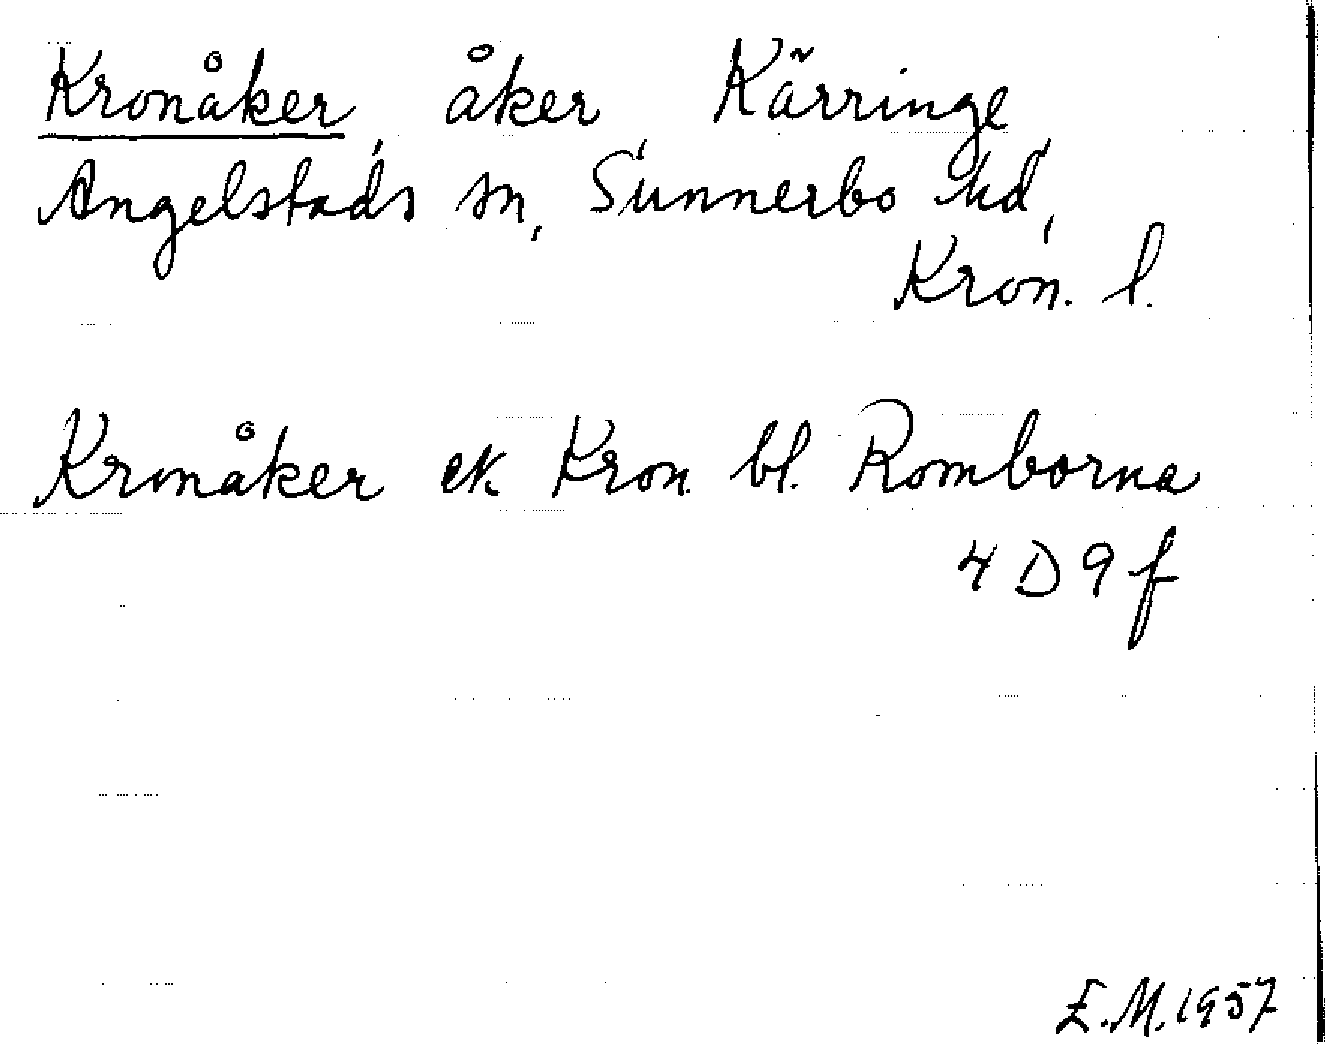 Kronåker, åker, Kärringe,
Angelstads sn, Sunnerbo hd,
Kron. l.
Kronåker ek. Kron. bl. Romborna
4 D 9 f
E.M. 1957